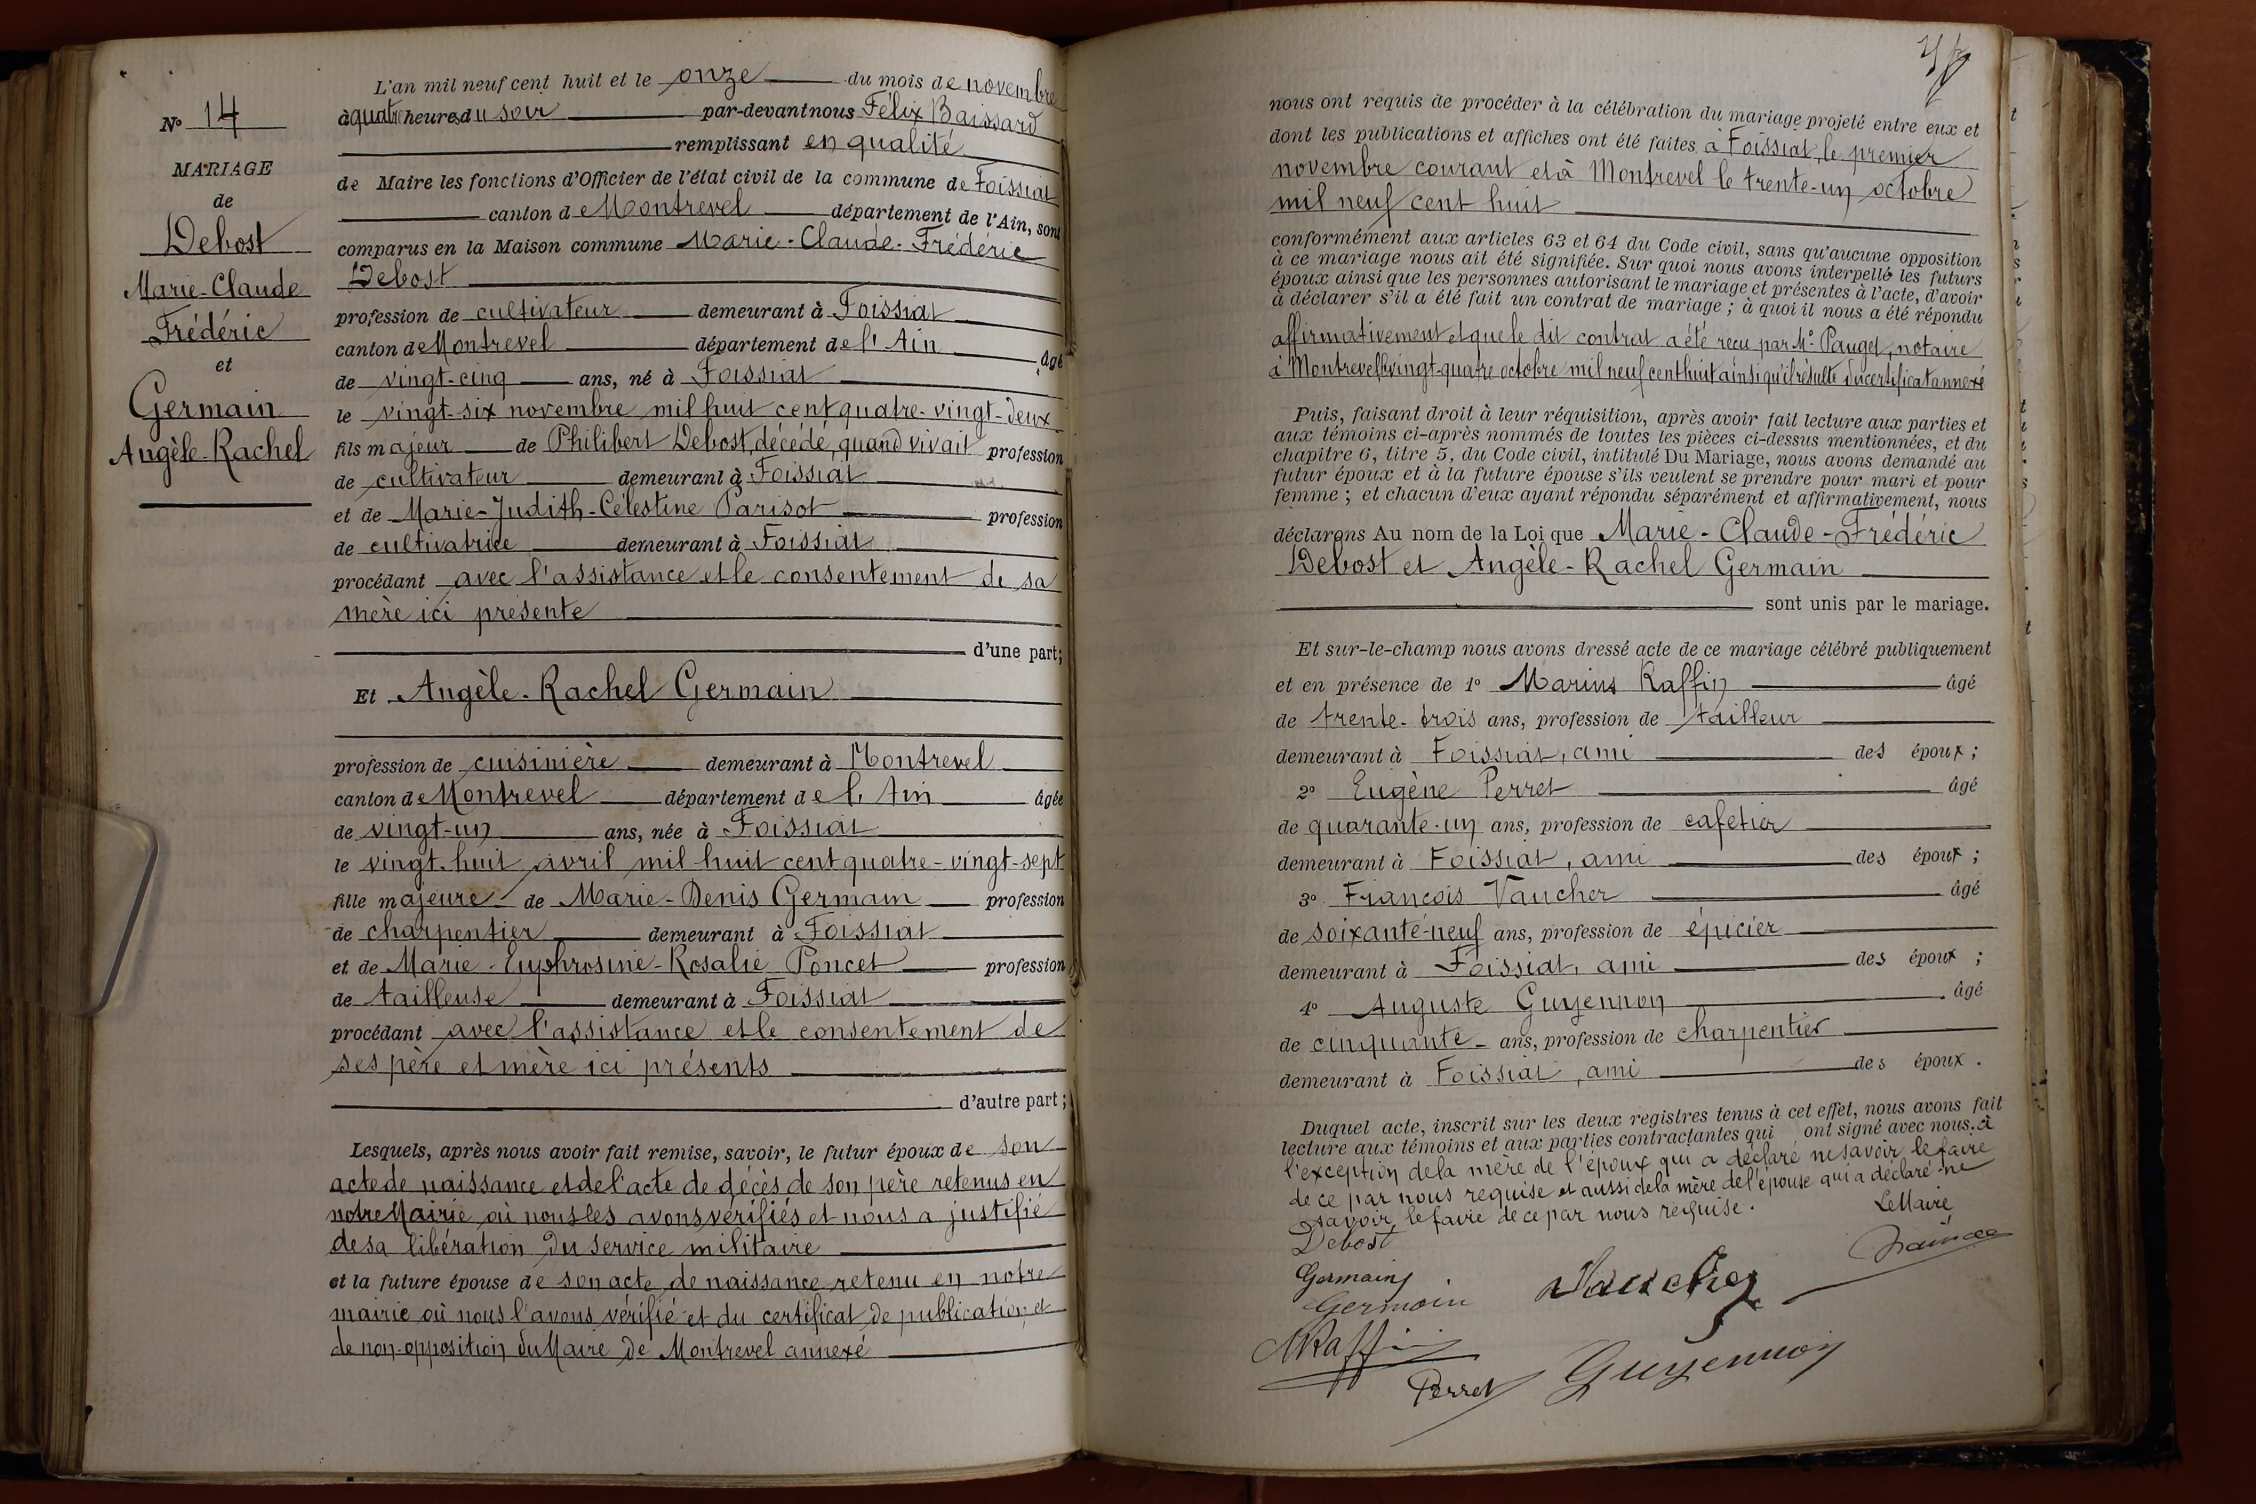 N° 14
MARIAGE
de
Debost
Marie-Claude
Frédéric
et
Germain
Angèle-Rachel
L'an mil neuf cent huit et le onze du mois de novembre
à quatre heures du soir par-devant nous Félix Baissard
remplissant en qualité
de Maire les fonctions d'Officier de l'état civil de la commune de Foissiat
canton de Montrevel département de l'Ain, sont
comparus en la Maison commune Marie-Claude-Frédéric
Debost
profession de cultivateur demeurant à Foissiat
canton de Montrevel département de l'Ain âgé
de vingt-cinq ans, né à Foissiat
le vingt-six novembre mil huit cent quatre-vingt-deux
fils majeur de Philibert Debost, décédé, quand vivait profession
de cultivateur demeurant à Foissiat
et de Marie-Judith-Célestine Parisot profession
de cultivatrice demeurant à Foissiat
procédant avec l'assistance et le consentement de sa
mère ici présente
d'une part;
Et Angèle-Rachel Germain
profession de cuisinière demeurant à Montrevel
canton de Montrevel département de l'Ain âgée
de vingt-un ans, née à Foissiat
le vingt-huit avril mil huit cent quatre-vingt-sept
fille majeure de Marie-Denis Germain profession
de charpentier demeurant à Foissiat
et de Marie-Euphrosine-Rosalie Poncet profession
de tailleuse demeurant à Foissiat
procédant avec l'assistance et le consentement de
ses père et mère ici présents
d'autre part;
Lesquels, après nous avoir fait remise, savoir, le futur époux de son
acte de naissance et de l'acte de décès de son père retenus en
notre Mairie où nous les avons vérifiés et nous a justifié
de sa libération du service militaire
et la future épouse de son acte de naissance retenu en notre
mairie où nous l'avons vérifié et du certificat de publication et
de non-opposition du Maire de Montrevel annexé
nous ont requis de procéder à la célébration du mariage projeté entre eux et
dont les publications et affiches ont été faites à Foissiat, le premier
novembre courant et à Montrevel le trente-un octobre
mil neuf cent huit
conformément aux articles 63 et 64 du Code civil, sans qu'aucune opposition
à ce mariage nous ait été signifiée. Sur quoi nous avons interpellé les futurs
époux ainsi que les personnes autorisant le mariage et présentes à l'acte, d'avoir
à déclarer s'il a été fait un contrat de mariage; à quoi il nous a été répondu
affirmativement et que le dit contrat a été reçu par Me Pauget, notaire
à Montrevel le vingt-quatre octobre mil neuf cent huit ainsi qu'il résulte du certificat annexé
Puis, faisant droit à leur réquisition, après avoir fait lecture aux parties et
aux témoins ci-après nommés de toutes les pièces ci-dessus mentionnées, et du
chapitre 6, titre 5, du Code civil, intitulé Du Mariage, nous avons demandé au
futur époux et à la future épouse s'ils veulent se prendre pour mari et pour
femme; et chacun d'eux ayant répondu séparément et affirmativement, nous
déclarons Au nom de la Loi que Marie-Claude-Frédéric
Debost et Angèle-Rachel Germain
sont unis par le mariage.
Et sur-le-champ nous avons dressé acte de ce mariage célébré publiquement
et en présence de 1° Marius Raffin âgé
de trente-trois ans, profession de tailleur
demeurant à Foissiat, ami des époux;
2° Eugène Perret âgé
de quarante-un ans, profession de cafetier
demeurant à Foissiat, ami des époux;
3° François Vaucher âgé
de soixante-neuf ans, profession de épicier
demeurant à Foissiat, ami des époux;
4° Auguste Guyennon âgé
de cinquante ans, profession de charpentier
demeurant à Foissiat, ami des époux.
Duquel acte, inscrit sur les deux registres tenus à cet effet, nous avons fait
lecture aux témoins et aux parties contractantes qui ont signé avec nous. à
l'exception de la mère de l'époux qui a déclaré ne savoir le faire
de ce par nous requise et aussi de la mère de l'épouse qui a déclaré ne
savoir le faire de ce par nous requise.
Le Maire
Debost
Germain
Germain
Vaucher
MRaffin
Perret
Guyennon